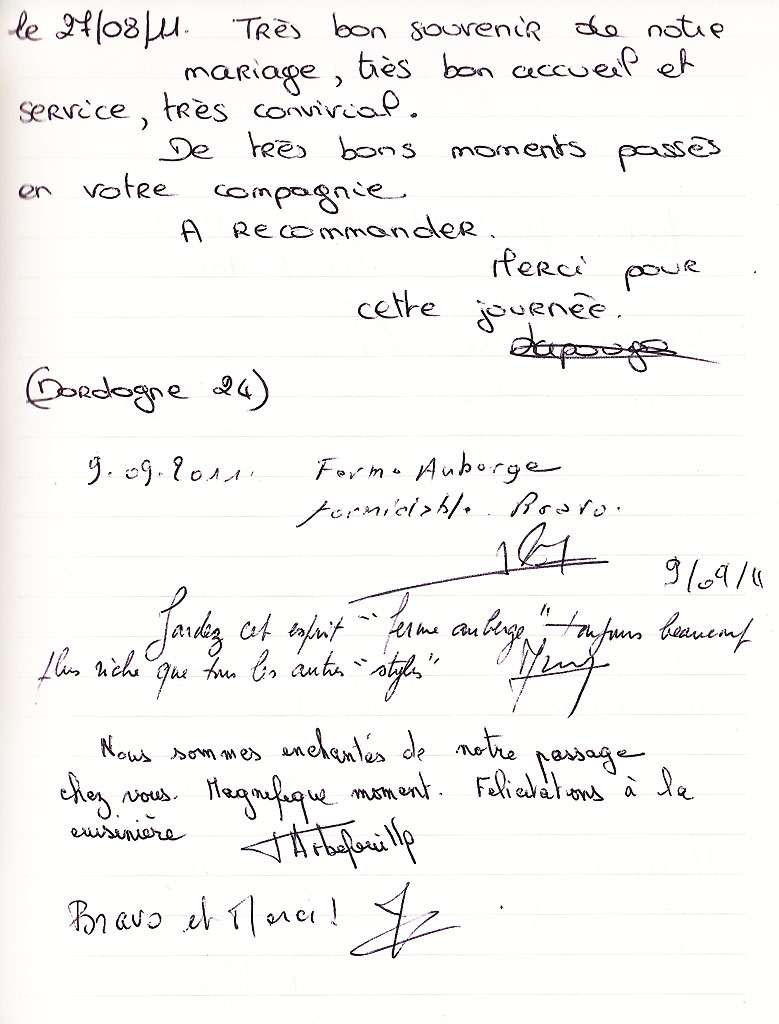 le 27/08/11. TRÈS bon souvenir de notre
mariage, très bon accueil et
service, très convivial.
De très bons moments passés
en votre compagnie
A Recommander.
Merci pour
cette journée.
(Dordogne 24)
9.09.2011. Ferme Auberge
formidable. Bravo.
9/09/11
Gardez cet esprit "ferme auberge" toujours beaucoup
plus riche que tous les autres "styles"
Nous sommes enchantés de notre passage
chez vous. Magnifique moment. Felicitations à la
cuisinière
Bravo et Merci !